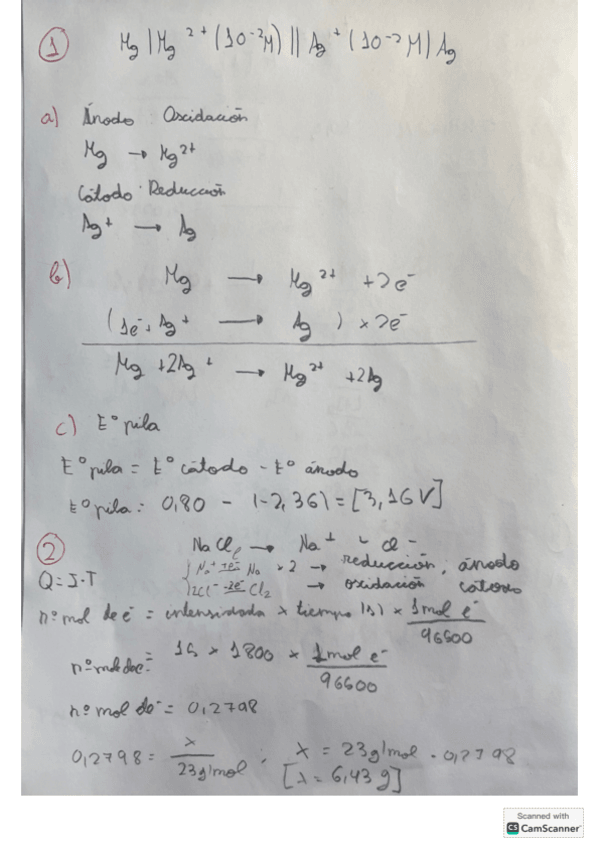 1 Mg | Mg 2+ (10-2M) || Ag+ (10-2 M) | Ag
a) Ánodo: Oxidación
Mg → Mg2+
Cátodo: Reducción
Ag+ → Ag
b) Mg → Mg2+ + 2e-
(1e- + Ag+ → Ag) x 2e-
Mg + 2Ag+ → Mg2+ + 2Ag
c) Eº pila
Eº pila = Eº cátodo - Eº ánodo
Eº pila: 0,80 - (-2,36) = [3,16V]
2 NaCl → Na+ Cl-
Na+ 1e- Na x 2 → reducción, ánodo
Q = I·T 2Cl- -2e- Cl2 → oxidación cátodo
nº mol de e- = intensidada x tiempo (s) x 1mol e-
96500
nº mol de e- = 15 x 1800 x 1mol e-
96500
nº mol de- = 0,2798
0,2798 = x / 23g/mol ; x = 23g/mol · 0,2798
[x = 6,43 g]
Scanned with
CS CamScanner